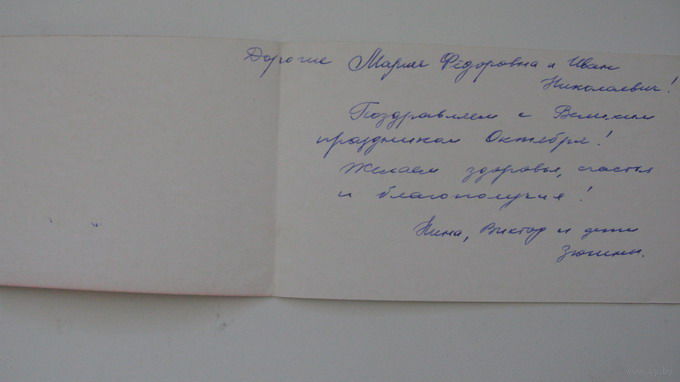 Дорогие Мария Фёдоровна и Иван
Николаевич!
Поздравляем с Великим
праздником Октября!
Желаем здоровья, счастья
и благополучия!
Нина, Виктор и дети
Зюзины.